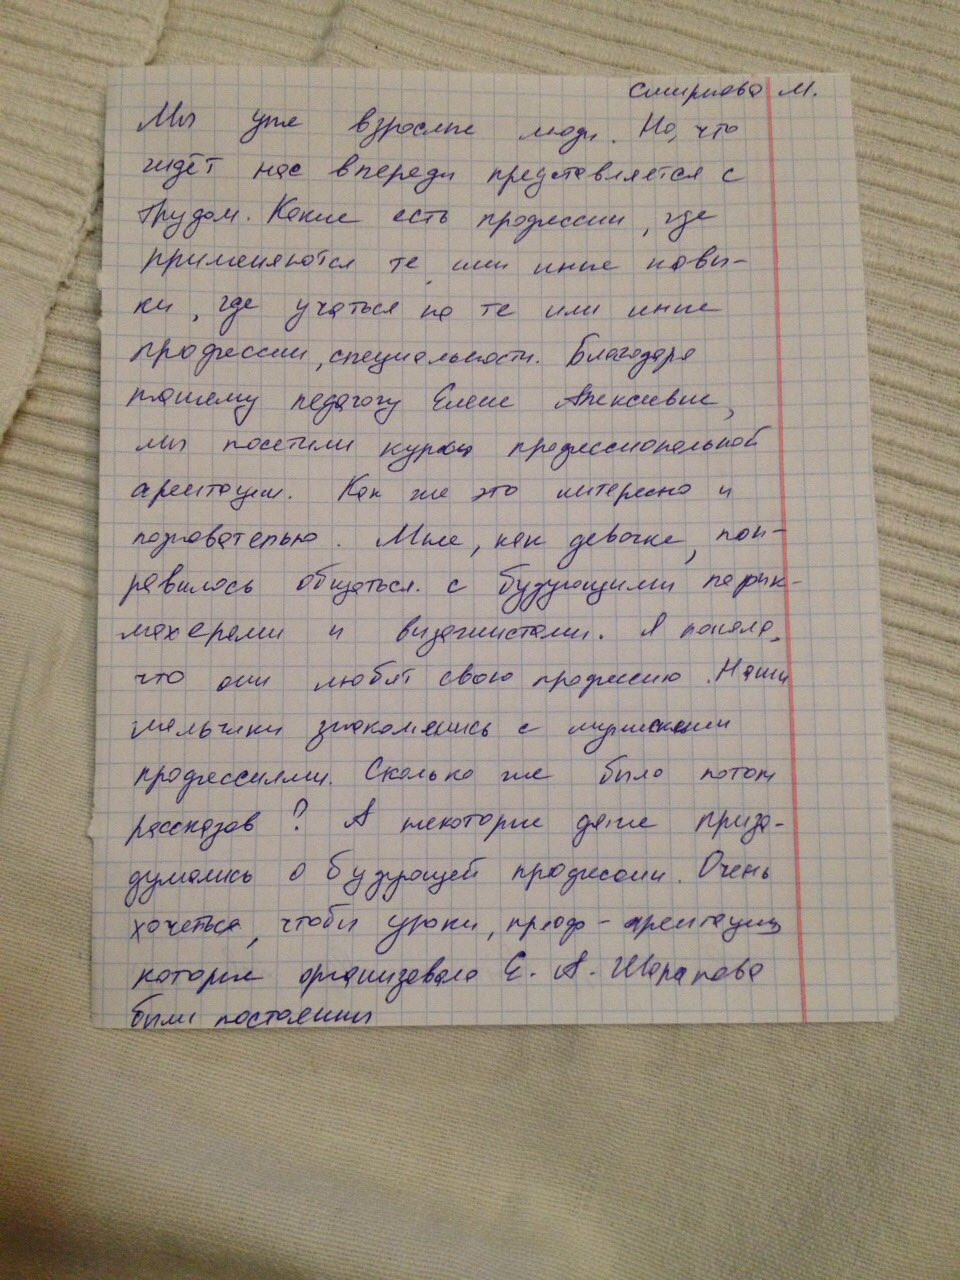 Смирнова М.
Мы уже взрослые люди. Но, что
ждёт нас впереди представляется с
трудом. Какие есть професии, где
применяются те или иные навы-
ки, где учаться на те или иные
професии, специальности. Благодаря
нашему педагогу Елене Алексевне,
мы посетили курсы професиональной
арентации. Как же это интересно и
позновательно. Мне, как девочке, пон-
равилось общаться с будующими парик-
махерами и визажистами. Я поняла,
что они любят свою професию. Наши
мальчики знакомились с мужскими
професиями. Сколько же было потом
рассказов? А некоторые даже приза-
думались о будующей професии. Очень
хочеться, чтобы уроки, проф-арентации
которые организовала Е. А. Шарапова
были постояны